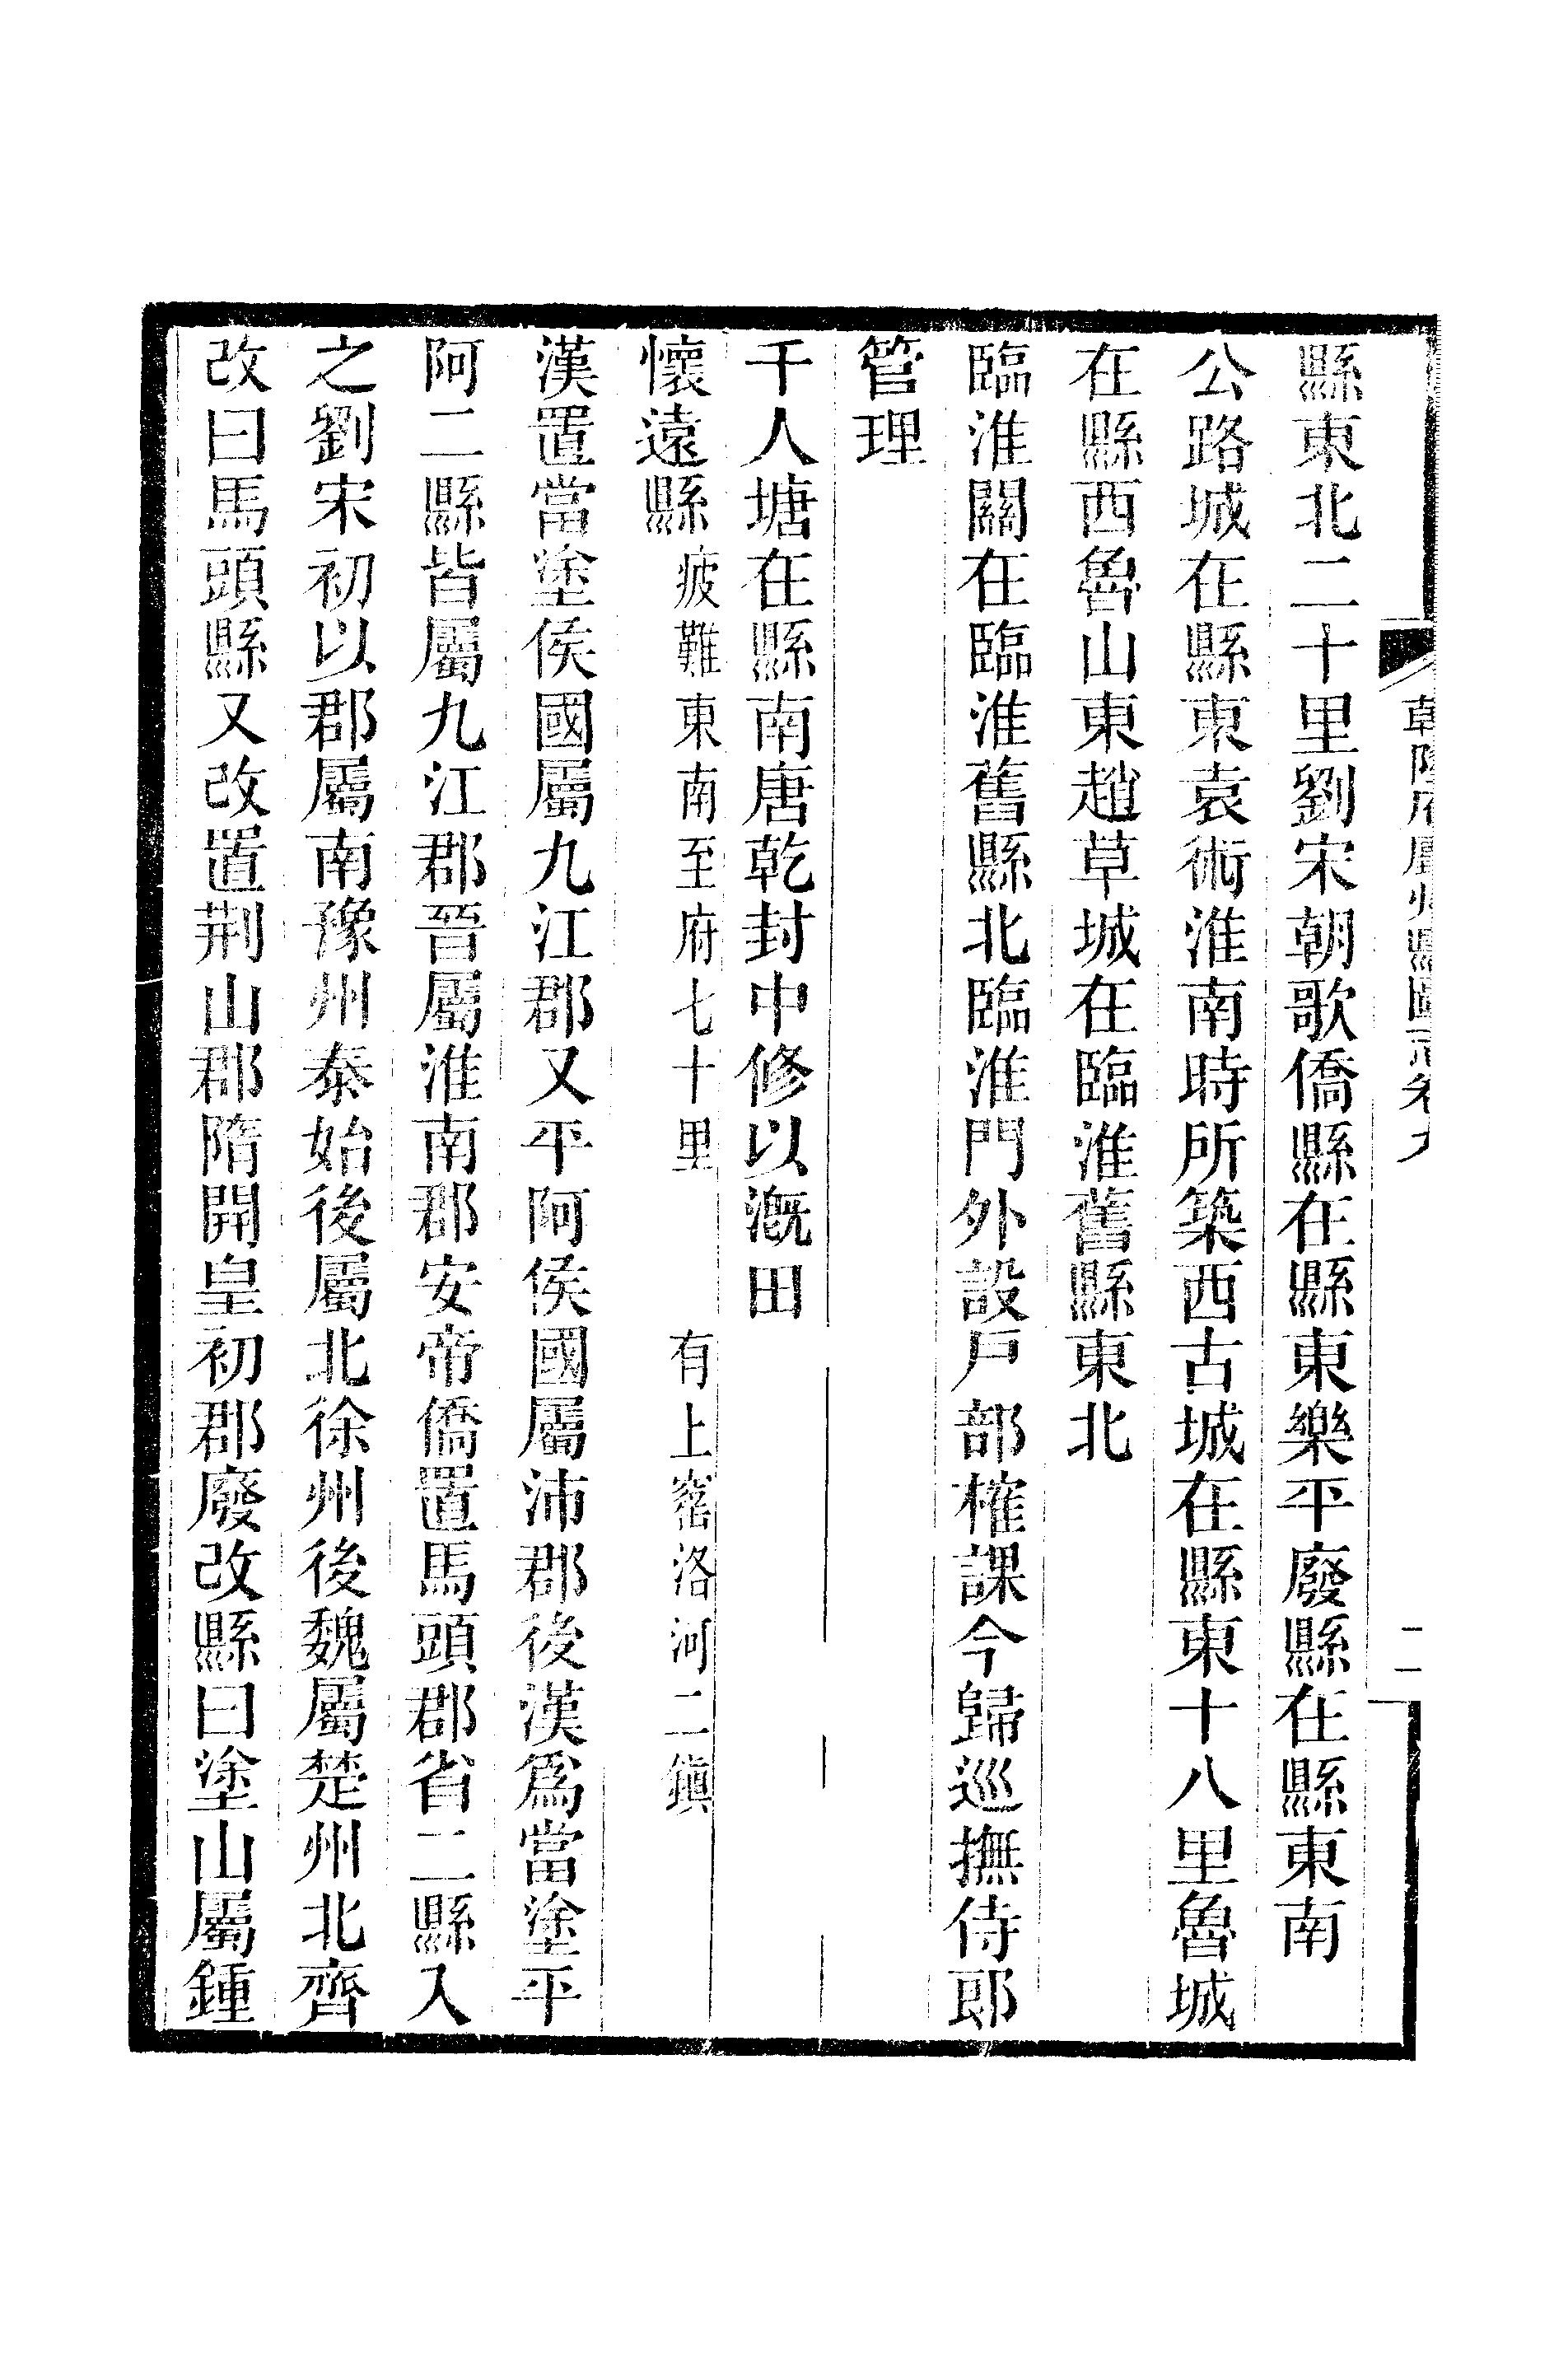 縣東北二十里劉宋朝歌僑縣在縣東樂平廢縣在縣東南
公路城在縣東袁術淮南時所築西古城在縣東十八里魯城
在縣西魯山東趙草城在臨淮舊縣東北
臨淮關在臨淮舊縣北臨淮門外設戸部榷課今歸巡撫侍郎
管理
千人塘在縣南唐乾封中修以漑田
懷遠縣疲難東南至府七十里 有上窰洛河二鎭
漢置當塗侯國屬九江郡又平阿侯國屬沛郡後漢爲當塗平
阿二縣皆屬九江郡晉屬淮南郡安帝僑置馬頭郡省二縣入
之劉宋初以郡屬南豫州泰始後屬北徐州後魏屬楚州北齊
改曰馬頭縣又改置荆山郡隋開皇初郡廢改縣曰塗山屬鍾